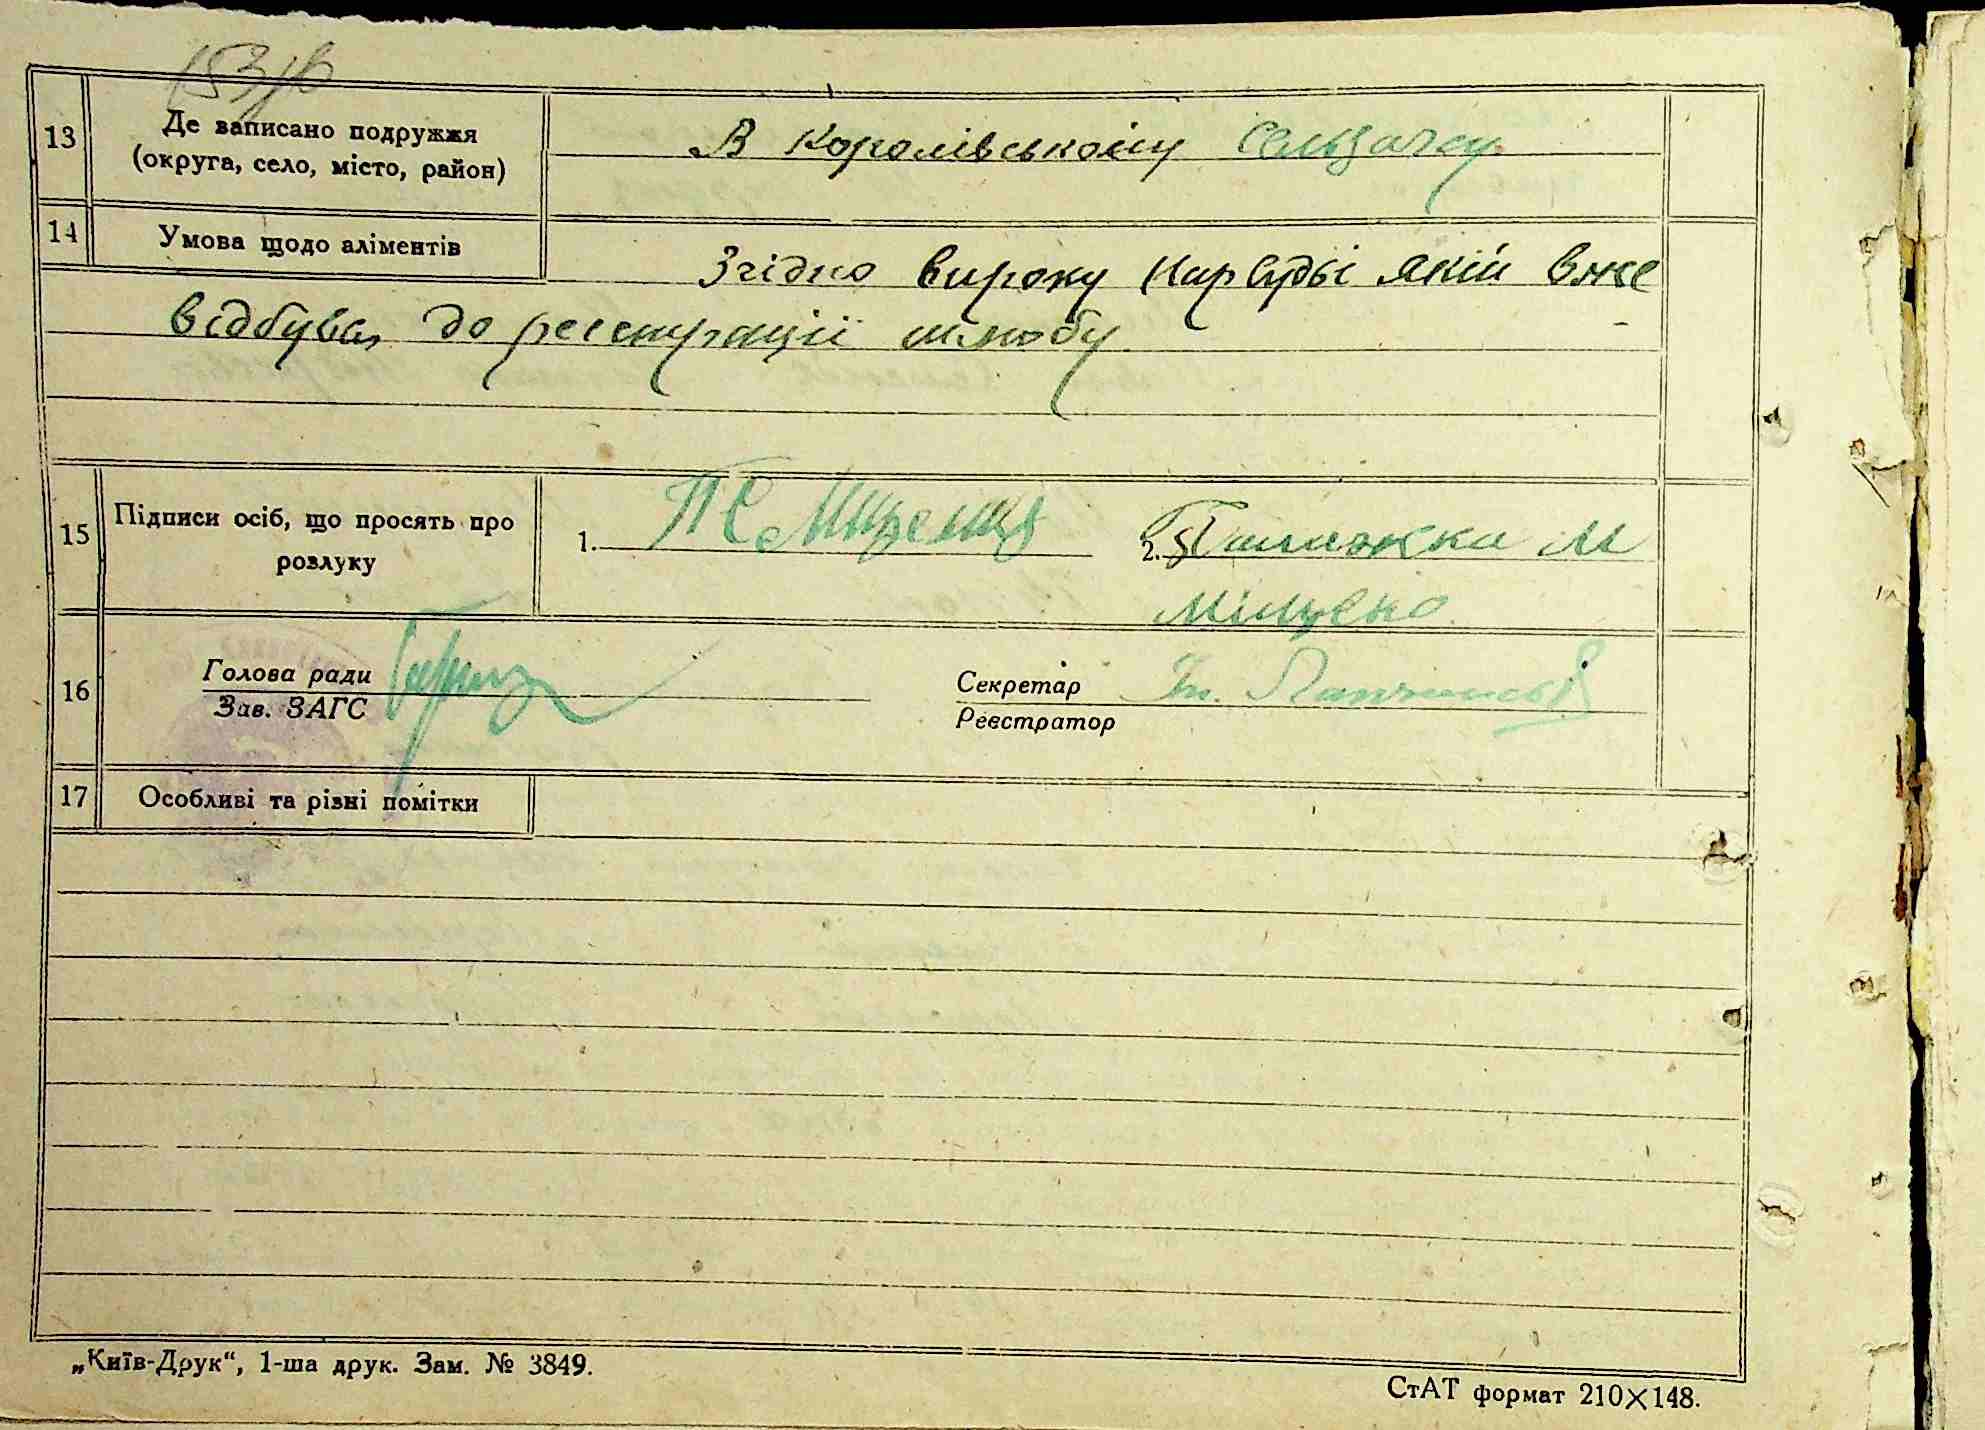 153/в
13 Де записано подружжя
(округа, село, місто, район)
В Королівському сельзагсу
14 Умова щодо аліментів
Згідно вироку нарсуді якій вже
відбував до реєстрації шлюбу.
15 Підписи осіб, що просять про
розлуку
1. 2.
Міщенко
16 Голова ради
Зав. ЗАГС
Секретар
Реєстратор
17 Особливі та різні помітки
„Київ-Друк“, 1-ша друк. Зам. № 3849.
СтАТ формат 210×148.